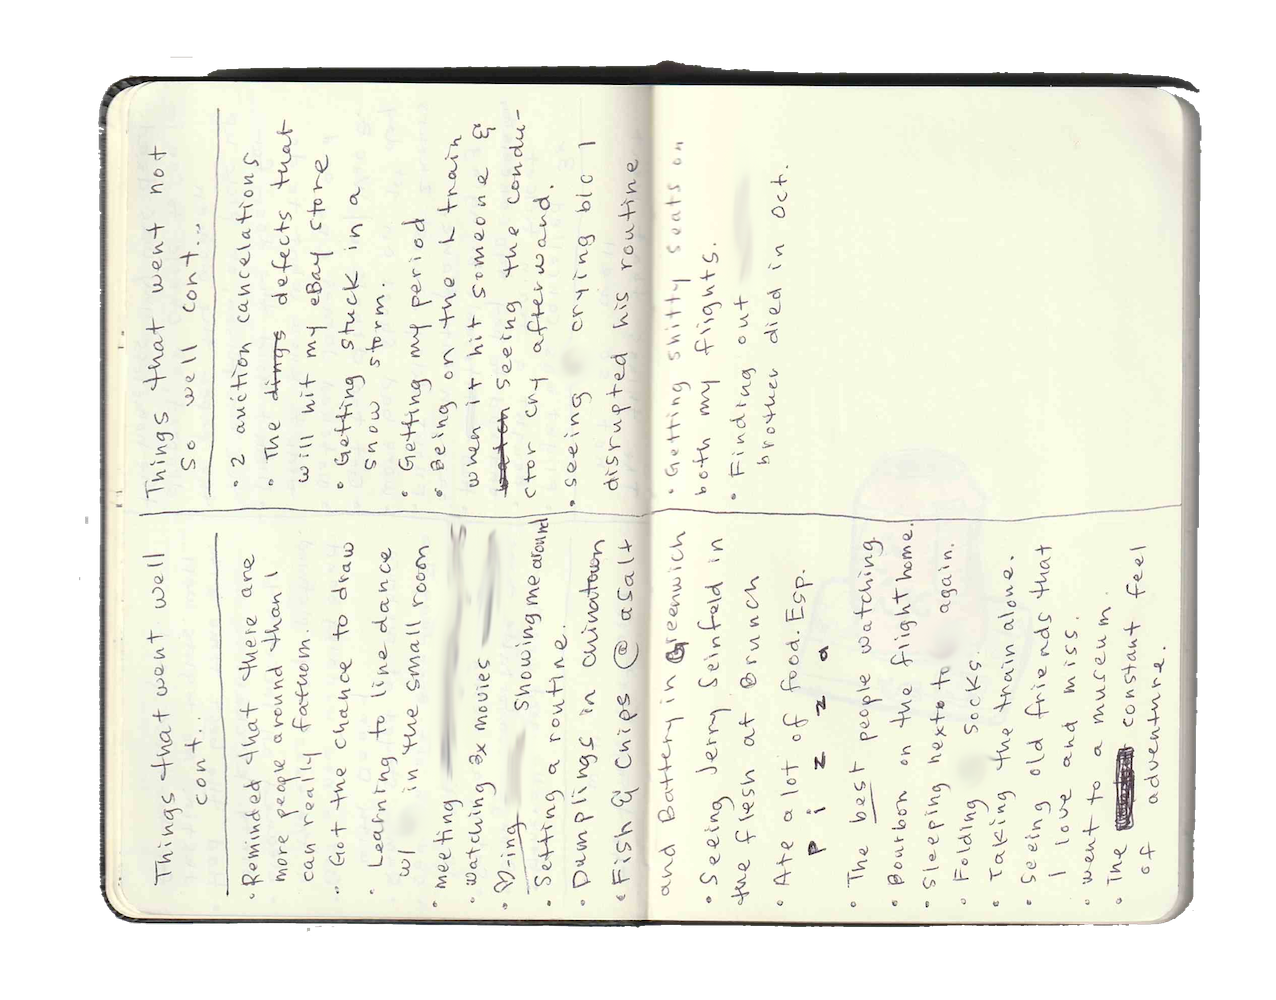 Things that went well
cont..
• Reminded that there are
more people around than I
can really fathom.
• Got the chance to draw
• Learning to line dance
w/ in the small room
• meeting
• Watching 3x movies
• ♡-ing showing me around
• Setting a routine.
• Dumplings in chinatown
• Fish & Chips @ a salt
and Battery in Greenwich
• Seeing Jerry Seinfeld in
the flesh at Brunch
• Ate a lot of food. Esp.
P i z z a
• The best people watching
• Bourbon on the flight home.
• Sleeping next to again.
• Folding socks.
• Taking the train alone.
• Seeing old friends that
I love and miss.
• went to a museum.
• The constant feel
of adventure.
Things that went not
so well cont...
• 2 auction cancelations
• The dings defects that
will hit my eBay store
• Getting stuck in a
snow storm.
• Getting my period
• Being on the train
when it hit someone &
watch seeing the condu-
ctor cry afterward.
• seeing crying b/c I
disrupted his routine
• Getting shitty seats on
both my flights.
• Finding out
brother died in Oct.